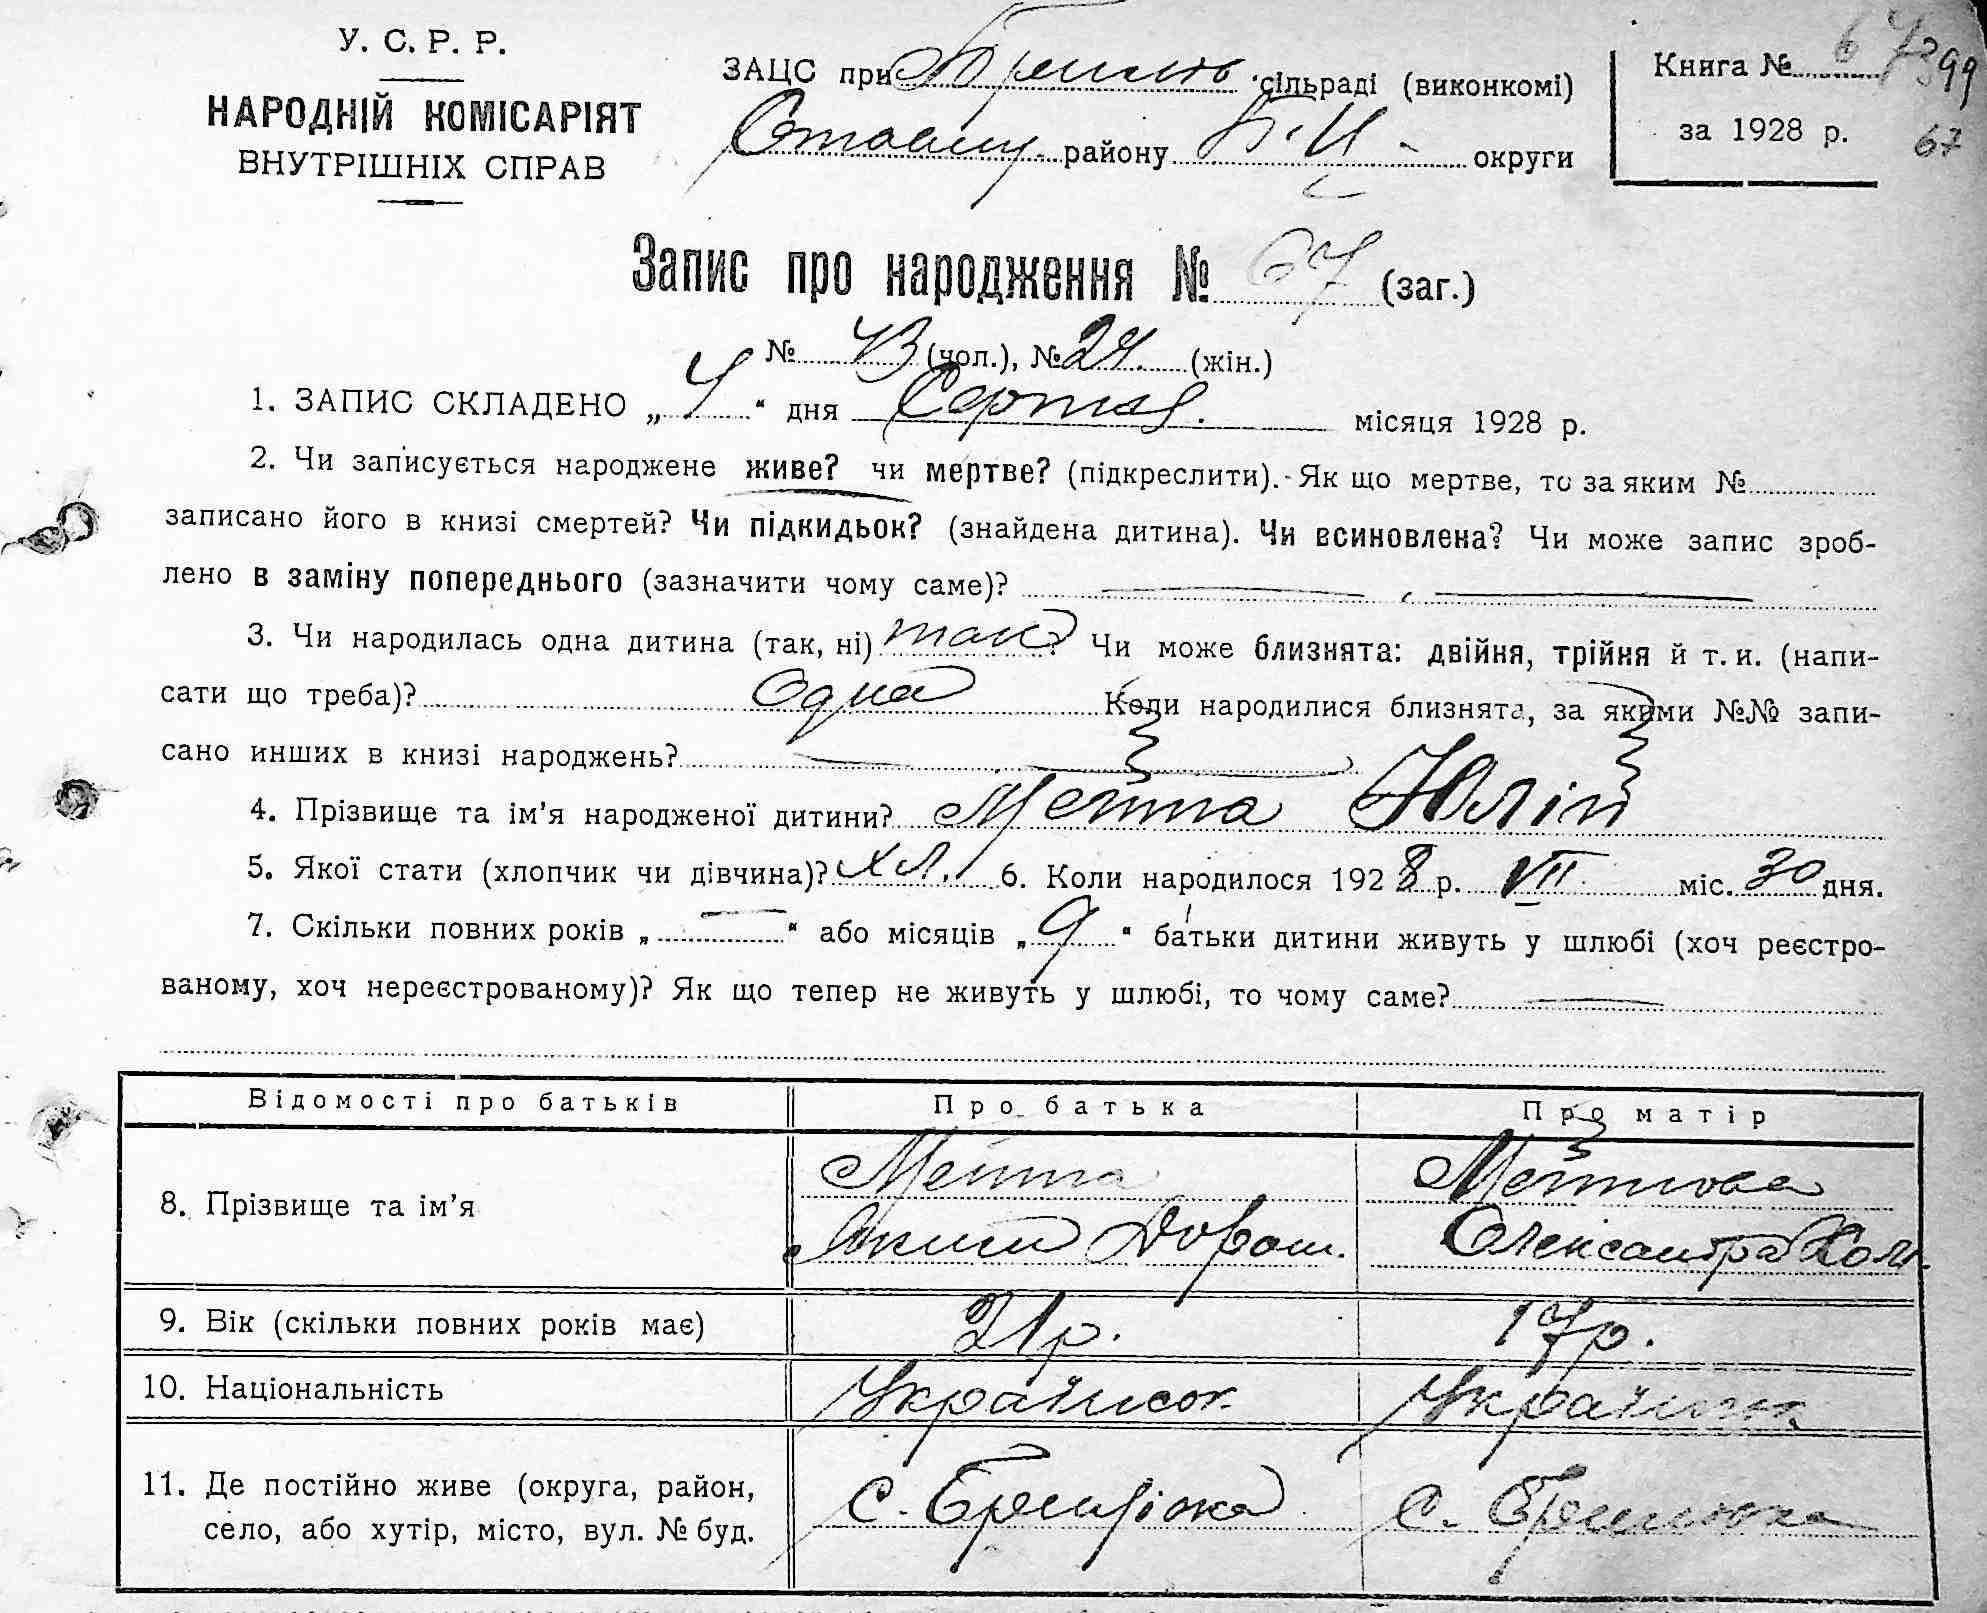 У. С. Р. Р.
НАРОДНІЙ КОМІСАРІЯТ
ВНУТРІШНІХ СПРАВ
ЗАЦС при сільраді (виконкомі)
району Б-Ц округи
Книга № 67
за 1928 р.
399
67
Запис про народження № 67 (заг.)
№ 43 (чол.), № 24. (жін.)
1. ЗАПИС СКЛАДЕНО „ 4 “ дня Серпня. місяця 1928 р.
2. Чи записується народжене живе? чи мертве? (підкреслити). Як що мертве, то за яким №
записано його в книзі смертей? Чи підкидьок? (знайдена дитина). Чи всиновлена? Чи може запис зроб-
лено в заміну попереднього (зазначити чому саме)?
3. Чи народилась одна дитина (так, ні) так? Чи може близнята: двійня, трійня й т. и. (напи-
сати що треба)? Одна Коли народилися близнята, за якими №№ запи-
сано инших в книзі народжень?
4. Прізвище та ім’я народженої дитини? Юлій
5. Якої стати (хлопчик чи дівчина)? хл. 6. Коли народилося 1928 р. VII міс. 30 дня.
7. Скільки повних років „ — “ або місяців „ 9 “ батьки дитини живуть у шлюбі (хоч реєстро-
ваному, хоч нереєстрованому)? Як що тепер не живуть у шлюбі, то чому саме?
Відомості про батьків Про батька Про матір
8. Прізвище та ім’я
Яким Дорош. Олександра
9. Вік (скільки повних років має) 21 р. 17 р.
10. Національність
11. Де постійно живе (округа, район,
село, або хутір, місто, вул. № буд.
с. с.